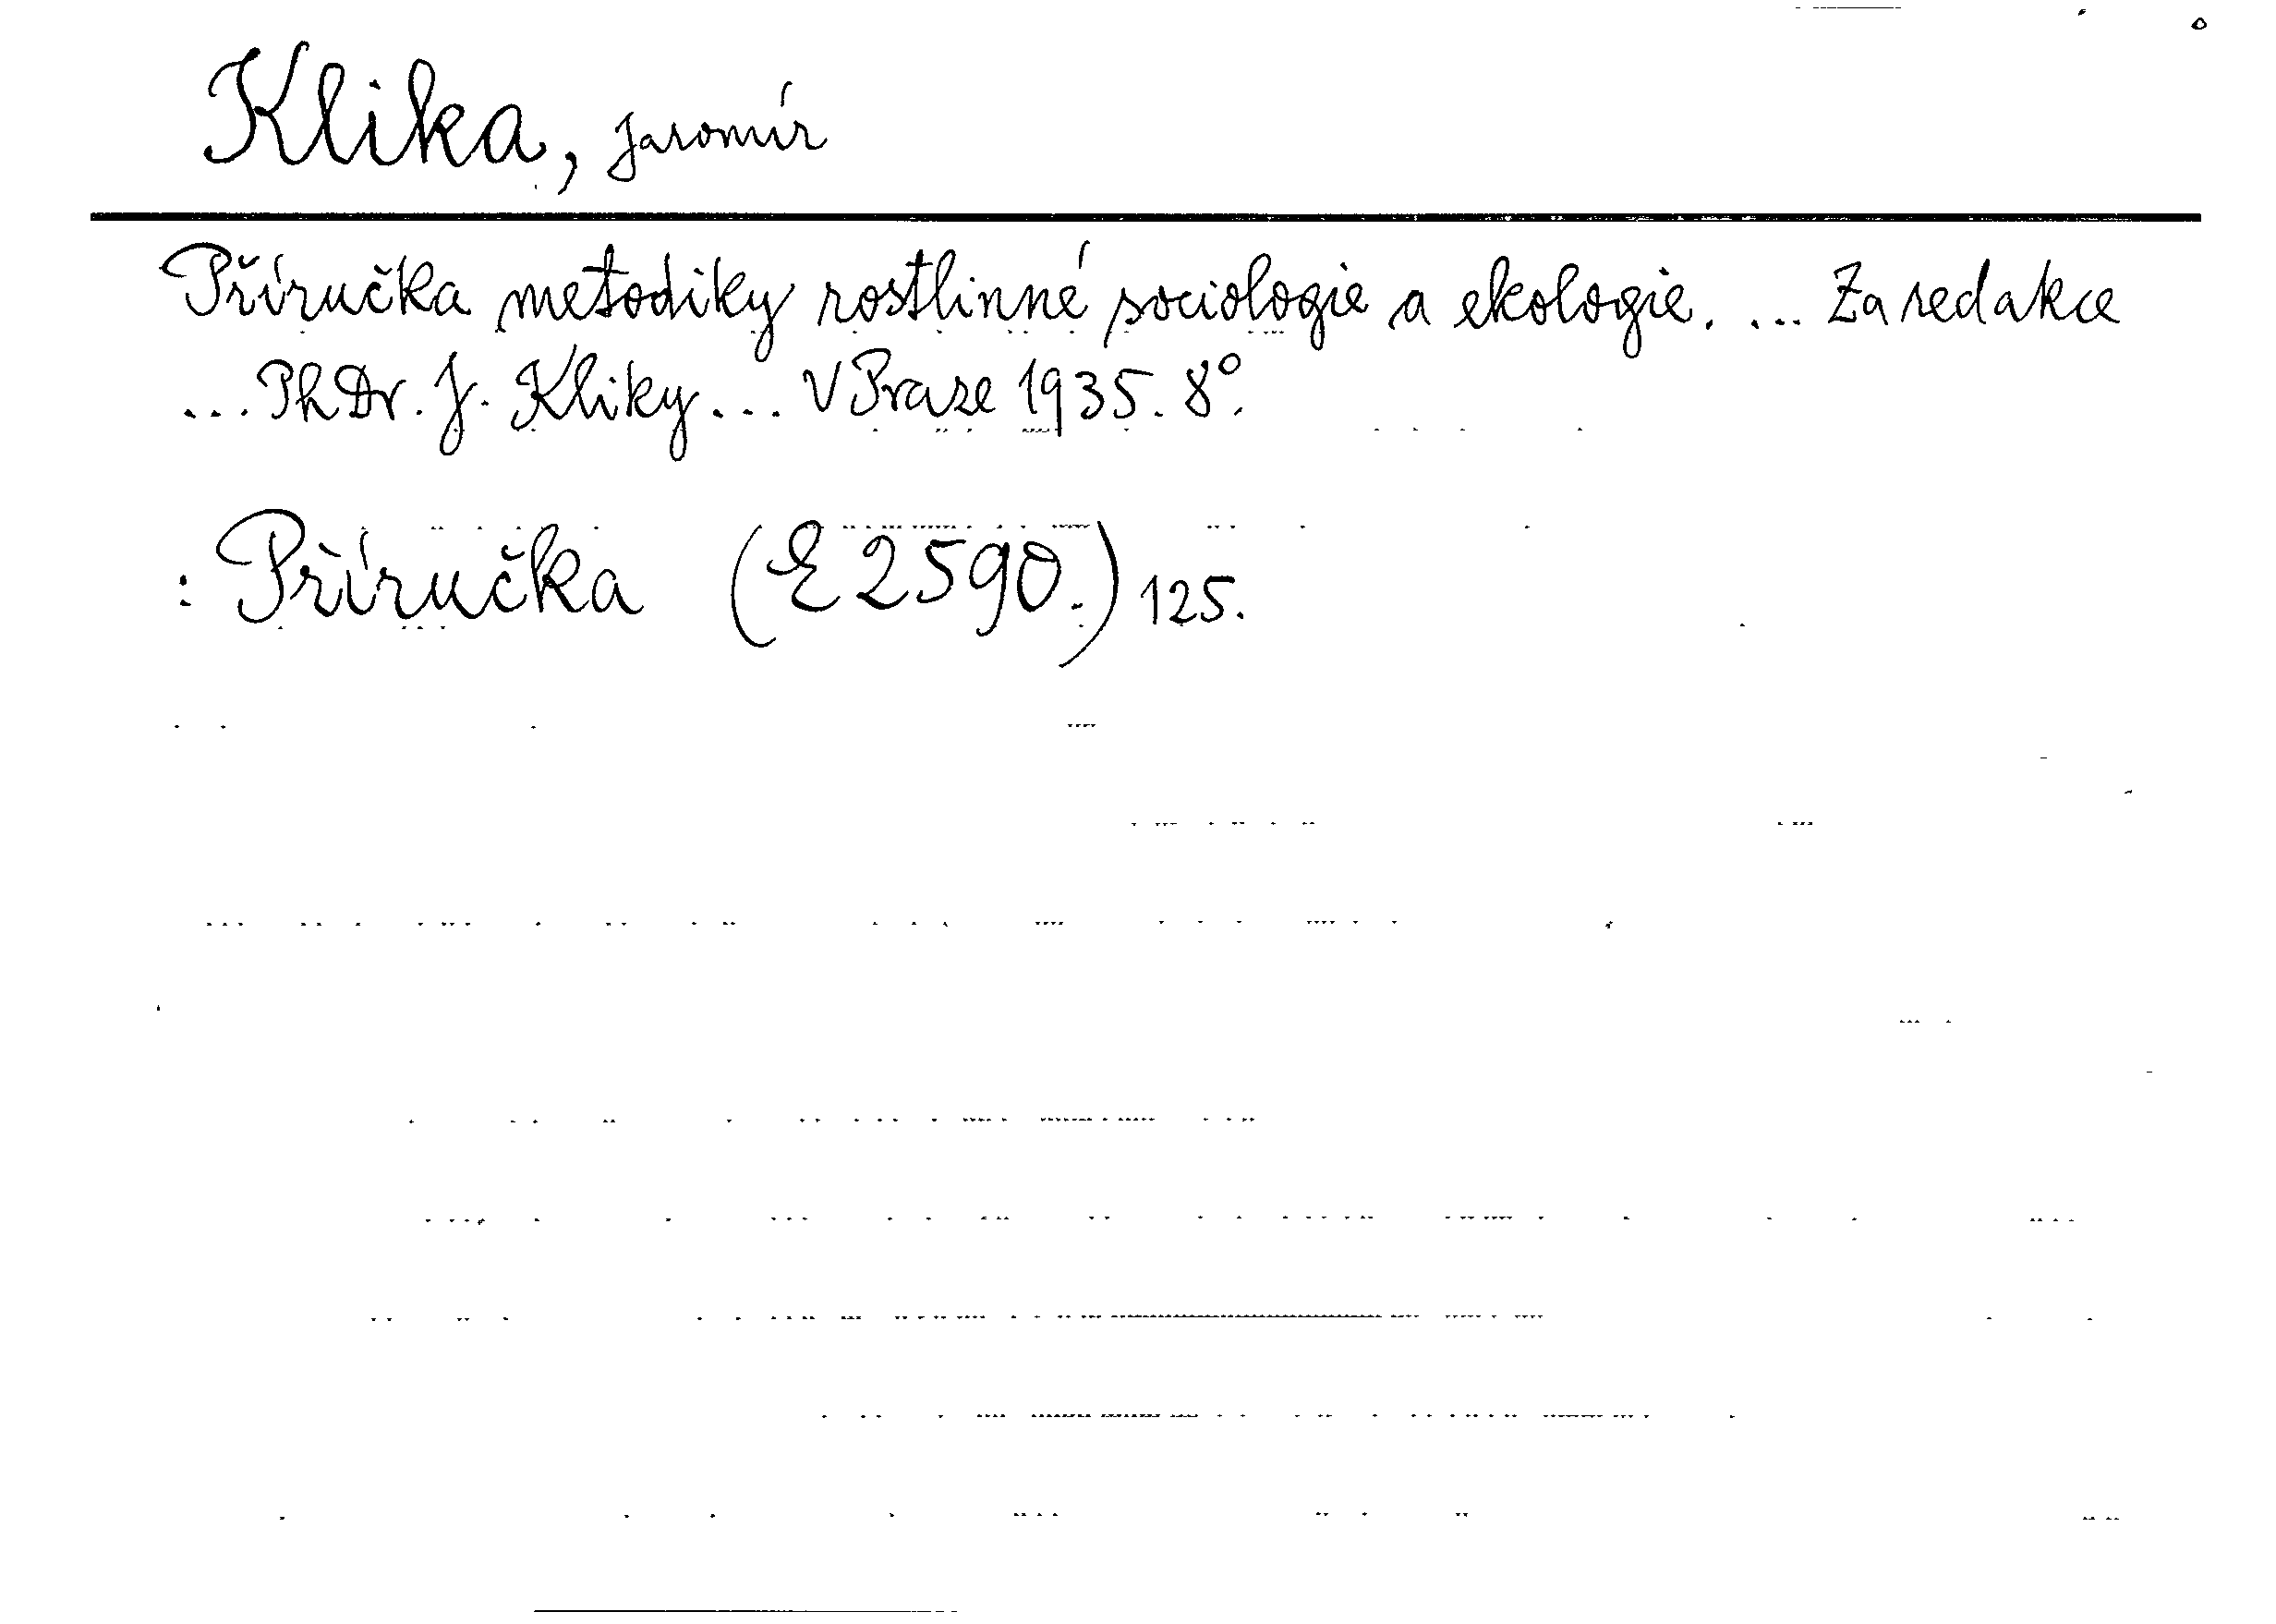 Klika, Jaromír
Příručka metodiky rostlinné sociologie a ekologie. ... Za redakce
... PhDr. J. Kliky ... V Praze 1935. 8°.
: Příručka (E 2590.) 125.